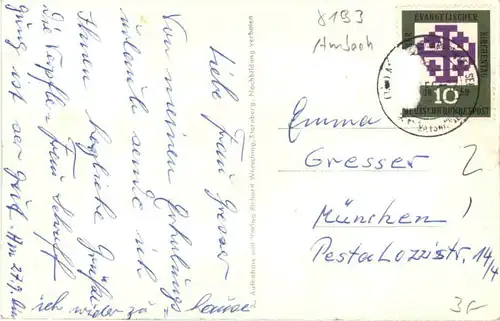 Liebe Frau Gresser
Von meinem Erholungs-
urlaube sende ich
Ihnen herzliche Grüße
Die Verpfle- Frau Schroff
gung ist sehr gut. Am 27.9. bin
ich wieder zu hause
Aufnahme und Verlag Richard Wörsching, Starnberg. Nachbildung verboten
8193
Ambach
EVANGELISCHER
KIRCHENTAG
10
DEUTSCHE BUNDESPOST
Emma
Gresser
München
Pestalozzistr. 14/4
2
3.-